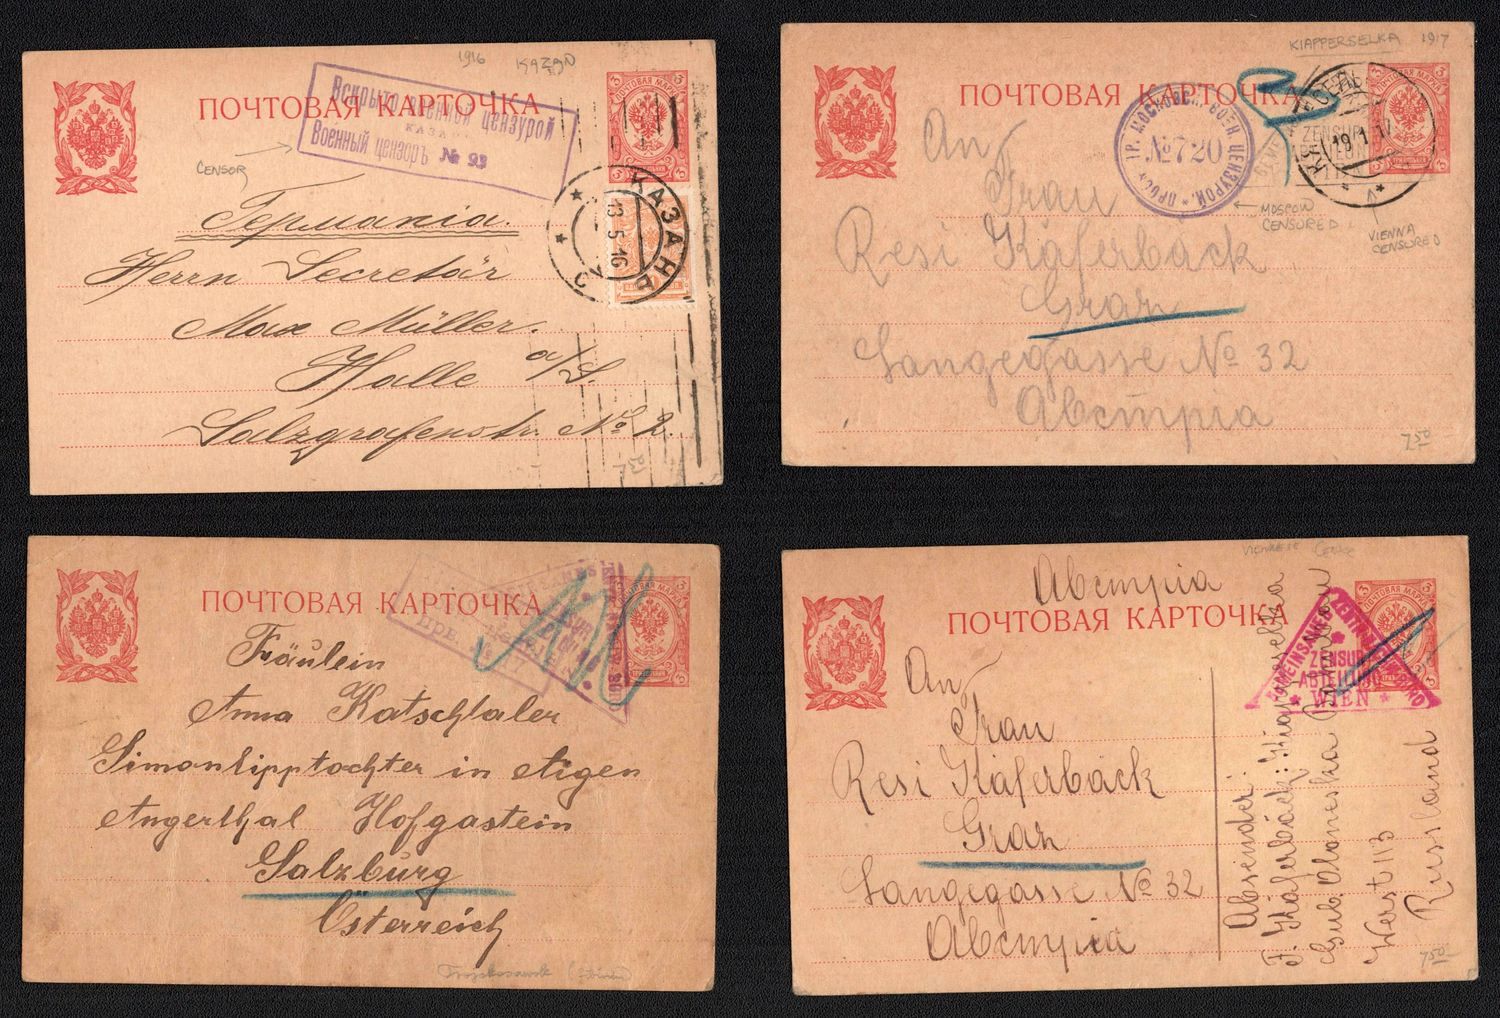 1916 KAZAN
ПОЧТОВАЯ КАРТОЧКА
Вскрыто военной цензурой
КАЗАНЬ
Военный цензоръ № 23
CENSOR
КАЗАНЬ
13 5 16
Германія
Herrn Secretär
Max Müller.
Halle a/S.
Salzgrafenstr. No 2.
KIAPPERSELKA 1917
ПОЧТОВАЯ КАРТОЧКА
№720
19.1.17
MOSCOW CENSORED
VIENNA CENSORED
An
Frau
Resi Käferbäck
Graz
Langegasse No 32
Австрія
7.50
ПОЧТОВАЯ КАРТОЧКА
Fräulein
Anna Katschtaler
Simonlipptochter in Aigen
Angerthal Hofgastein
Salzburg
Österreich
Австрія
ПОЧТОВАЯ КАРТОЧКА
ZENSUR
ABTEILUNG
WIEN
An
Frau
Resi Käferbäck
Graz
Langegasse No 32
Австрія
Absender:
F. Käferbäck: Kiapperselka
Gub. Oloneska
Werst 113
Russland
7.50